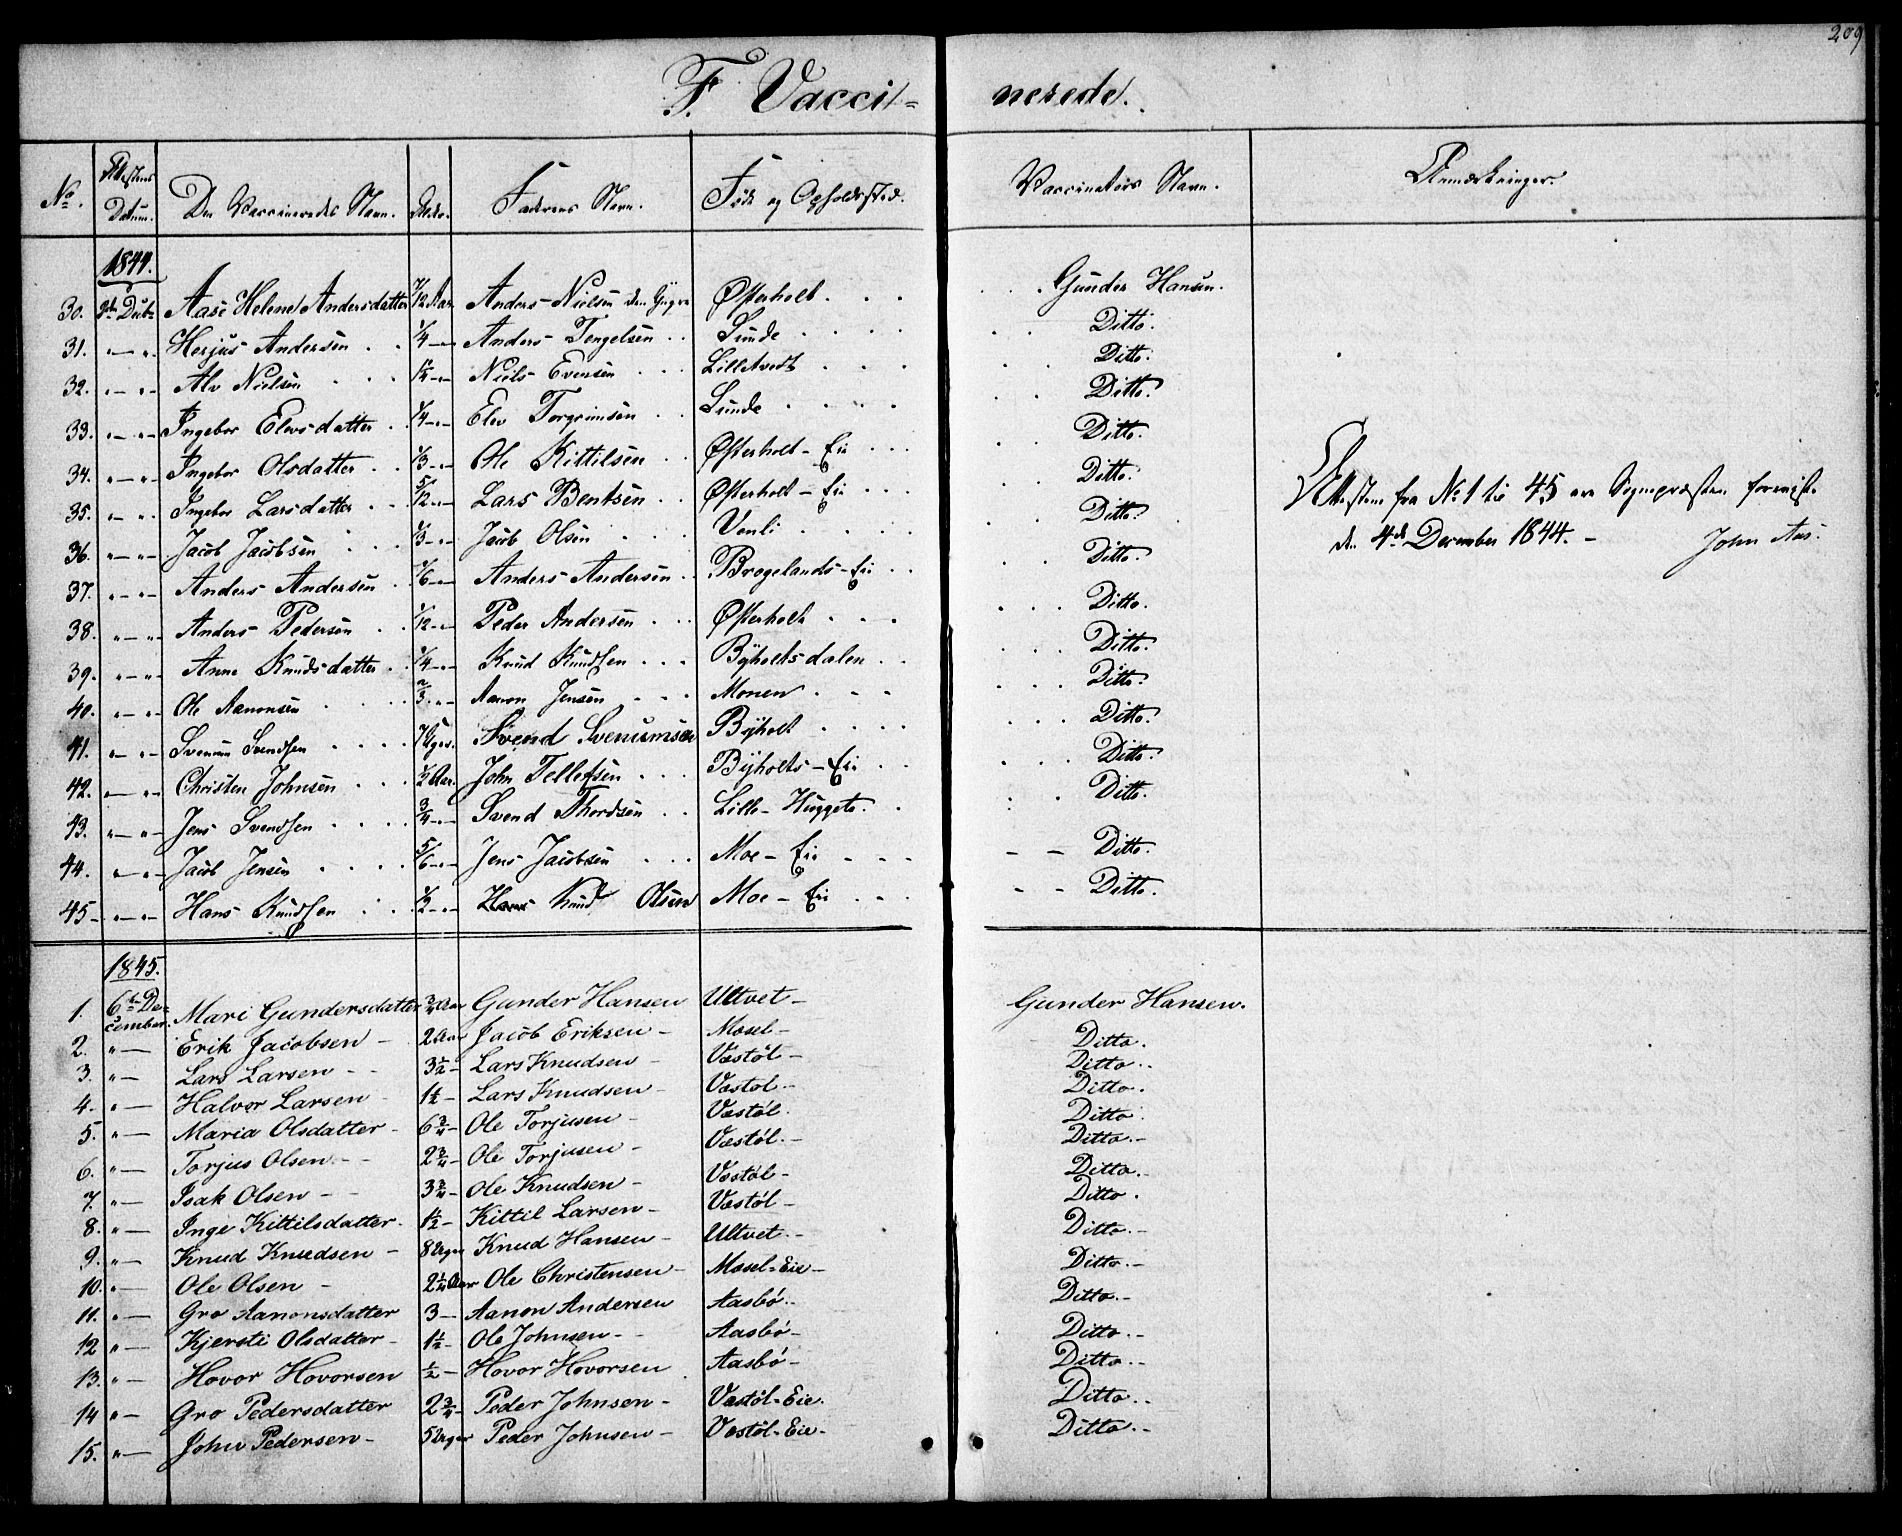 209
F. Vacci- nerede.
No. Attestens Datum. Den Vaccineredes Navn. Alder. Faderens Navn. Føde og Opholdssted. Vaccinateurs Navn. Anmærkninger.
1844.
30. Aase Helene Andersdatter 7/12 Aar Anders Nielsen den Yngre Østerholt . . . Gunder Hansen.
31. " — " Herjus Andersen . . 1/4 — " Anders Tengelsen . . Sunde . . . . Ditto.
32. " — " Alv Nielsen . . . — " Niels Evensen . . . Lilletvedt . . . Ditto.
33. " — " Ingebor Elevsdatter . 1/4 — " Elev Torgrimsen . . Sunde . . . . Ditto.
34. " — " Ingebor Olsdatter . . 1/3 — " Ole Kittilsen . . Østerholt - Eie . . . Ditto.
35. " — " Ingebor Larsdatter . . 5/12 — " Lars Bentsen . . Østerholt - Eie . . . Ditto.
36. " — " Jacob Jacobsen . . . 1/3 — " Jacob Olsen . . . Venli . . . . Ditto.
37. " — " Anders Andersen . . 1/6 — " Anders Andersen . . Brogelands - Eie . . Ditto.
38. " — " Anders Pedersen . . 1/12 — " Peder Andersen . . . Østerholt . . . Ditto.
39. " — " Anne Knudsdatter . . 1/4 — " Knud Knudsen . . . Byholtsdalen . . Ditto.
40. " — " Ole Aanonsen . . . . 2/3 — " Aanon Jensen . . . Monen . . . Ditto.
41. " — " Svenum Svendsen . . . . 7 Uger. Svend Svenumsen Byholt . . . . Ditto.
42. " — " Christen Johnsen . . . 1/2 Aar. John Tellefsen . . . Byholts - Eie . . Ditto.
43. " — " Jens Svendsen . . . . 3/4 — " Svend Thordsen . . Lille - Huggeto . . Ditto.
44. " — " Jacob Jensen . . . . 5/6 — " Jens Jacobsen . . . Moe - Eie . . . Ditto.
45 - " — " Hans Knudsen . . . 1/2 — " Knud Olsen Moe - Eie . . . Ditto.
Attesten fra No. 1 til 45 ere Sognepræsten foreviist.
den 4de December 1844. - John Aas.
1845.
1. 6te December. Mari Gundersdatter 3/4 Aar Gunder Hansen Ultvet - Gunder Hansen.
2. " — Erik Jacobsen - 2 Aar Jacob Eriksen - Mosel - Ditto.
3. " — Lars Larsen - - 3 1/2 - Lars Knudsen - Vestøl - Ditto.
4. " — Halvor Larsen - 1 1/2 - Lars Knudsen - Vestøl - Ditto.
5. " — Maria Olsdatter - 6 3/4 - Ole Torjusen - Vestøl. Ditto.
6. " — Torjus Olsen. - - 2 3/4 - Ole Torjusen - Vestøl. - Ditto. -
7. " — Isak Olsen - - 3 3/4 - Ole Knudsen - Vestøl - Ditto. -
8. " — Inge Kittilsdatter - 1 1/2 - Kittil Larsen - Vestøl - Ditto.
9. " — Knud Knudsen - 8 Uger Knud Hansen - Ultvet. - Ditto. -
10. " — Ole Olsen - 2 1/4 Aar Ole Christensen - Mosel - Eie - Ditto. -
11. " — Gro Aanonsdatter 3 - Aanon Andersen Aasbø. - Ditto. -
12 " — Kjersti Olsdatter - 1 1/2 - Ole Johnsen - - Aasbø - Ditto. -
13. " — Hovor Hovorsen 1/2 - Hovor Hovorsen Aasbø - Ditto. -
14 " — Gro Pedersdatter 2 3/4 - Peder Johnsen - Vestøl - Eie. Ditto. -
15. " — John Pedersen - 5 Uger Peder Johnsen - Vestøl - Eie - Ditto. -